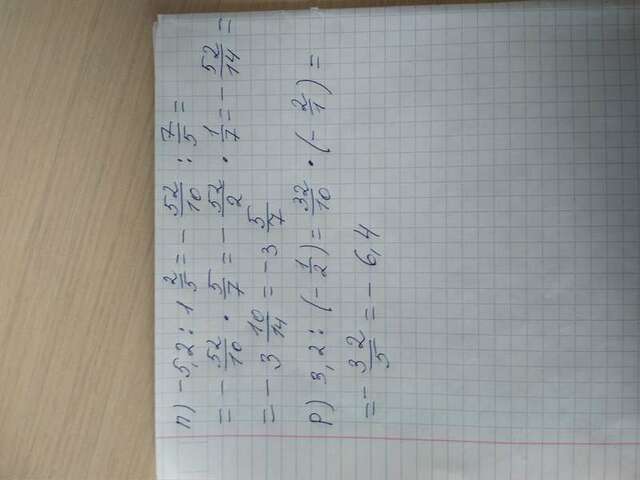 п) -5,2 : 1 2/5 = - 52/10 : 7/5 =
= - 52/10 · 5/7 = - 52/2 · 1/7 = - 52/14 =
= - 3 10/14 = - 3 5/7
р) 3,2 : (- 1/2) = 32/10 · (- 2/1) =
= - 32/5 = - 6,4